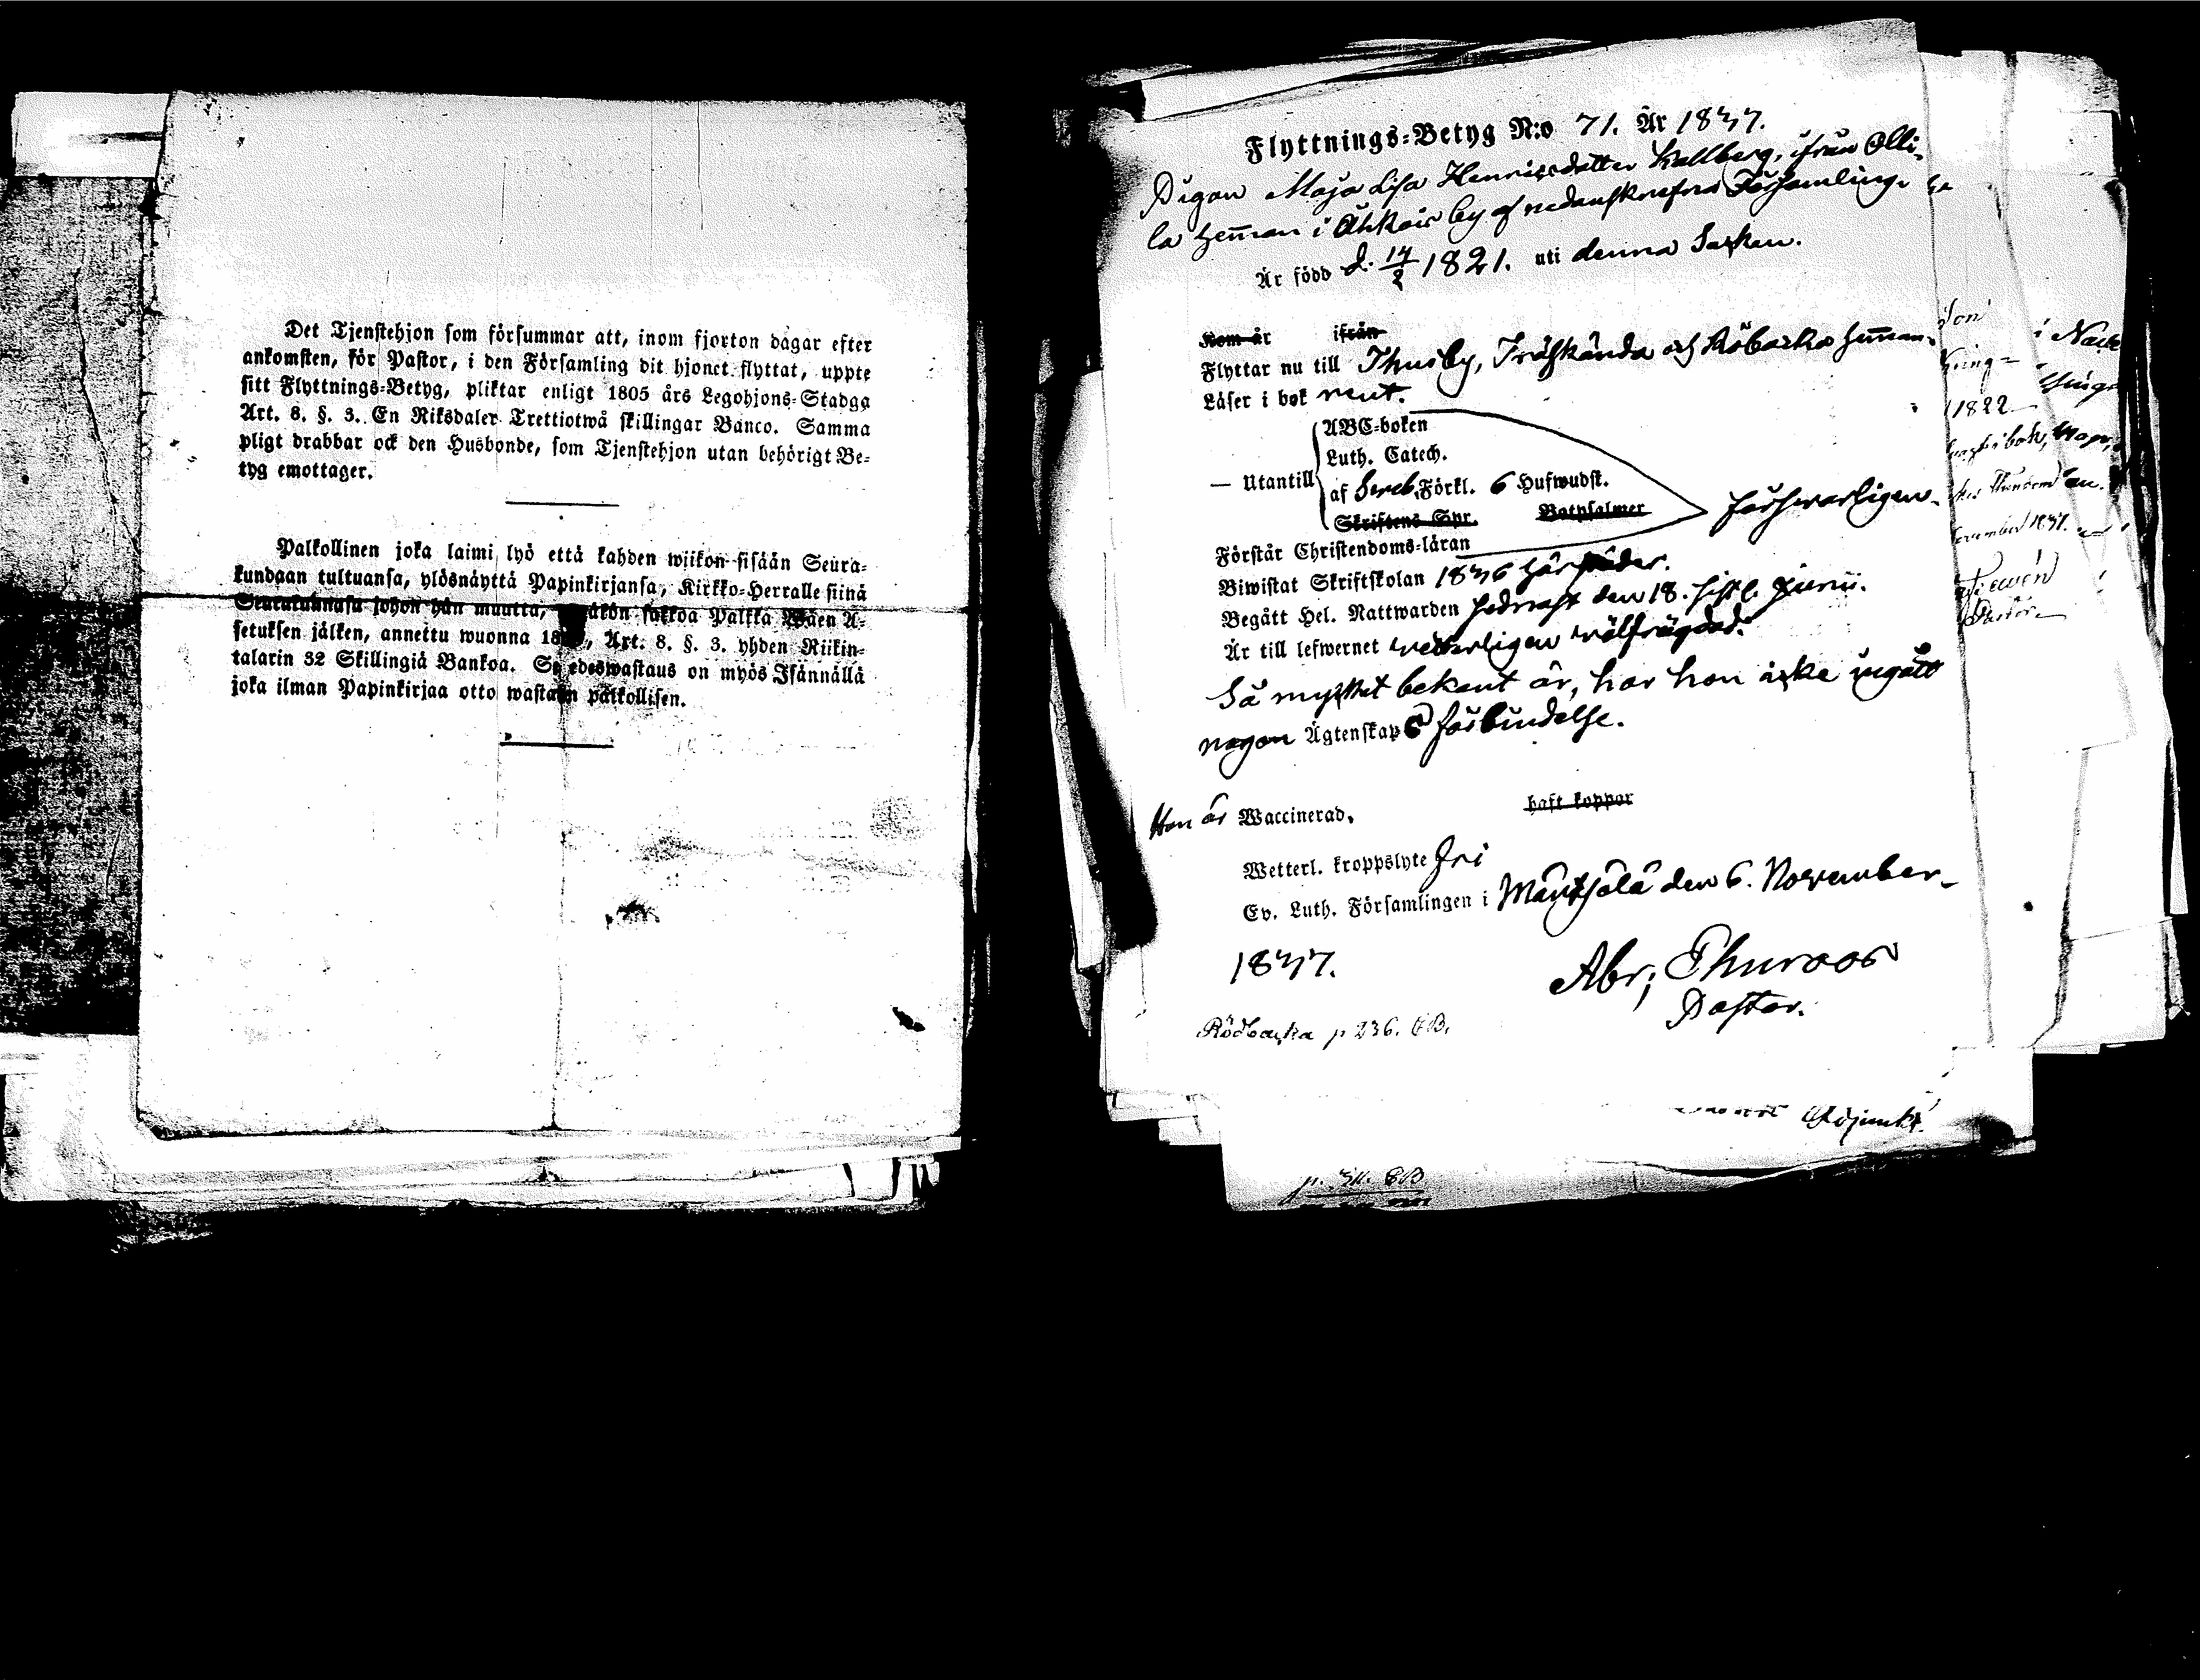 Det Tjenstehjon som försummar att, inom fjorton dagar efter
ankomsten, för Pastor, i den Församling dit hjonet flyttat, uppte
sitt Flyttnings-Betyg, pliktar enligt 1805 års Legohjons-Stadga
Art. 8. §. 3. En Riksdaler Trettiotwå skillingar Banco. Samma
pligt drabbar ock den Husbonde, som Tjenstehjon utan behörigt Be-
tyg emottager.
Palkollinen joka laimi lyö että kahden wiikon sisään Seura-
kundaan tultuansa, ylösnäyttä Papinkirjansa, Kirkko-Herralle siinä
Seurakunnasa johon hän muutta, sakkoa Palkka Wäen A-
setuksen jälken, annettu wuonna 18 , Art. 8. §. 3. yhden Riikin-
talarin 32 Skillingiä Bankoa. Se edeswastaus on myös Isännällä
joka ilman Papinkirjaa otto wastaan palkollisen.
Flyttnings-Betyg N:o 71. År 1837.
Pigan Maja Lisa Henricsdotter Kallberg, ifrån Olli-
la heman i by af nedanskrefne Församling
Är född d. 17/2 1821. uti denna Sockn.
Kom år ifrån
Flyttar nu till Thusby, Träskända och Röbacka heman.
Läser i bok rent.
ABC-boken
Luth. Catech.
— Utantill af Sveb. Förkl. 6 Hufwudst.
Skriftens Spr. Botpsalmer
försvarligen.
Förstår Christendoms-läran
Biwistat Skriftskolan 1836 härstädes.
Begått Hel. Nattwarden sednast den 18. sistl. Junii.
Är till lefwernet wetterligen wälfrägdad.
Så mycket bekant är, har hon icke ingått
någon Ägtenskaps förbindelse.
Hon är Waccinerad. haft koppor
Wetterl. kroppslyte fri
Ev. Luth. Församlingen i Mäntsälä den 6. November
1837.
Abr; Thuroos
Pastor.
Rödbacka p 236. CB.
Adjunkt.
1822
Pastor